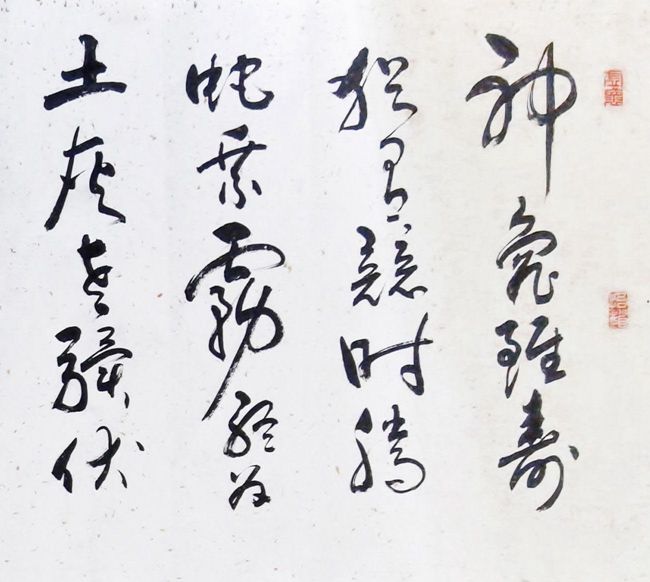 神龜雖壽
猶有竟时騰
蛇乘霧終為
土灰老驥伏